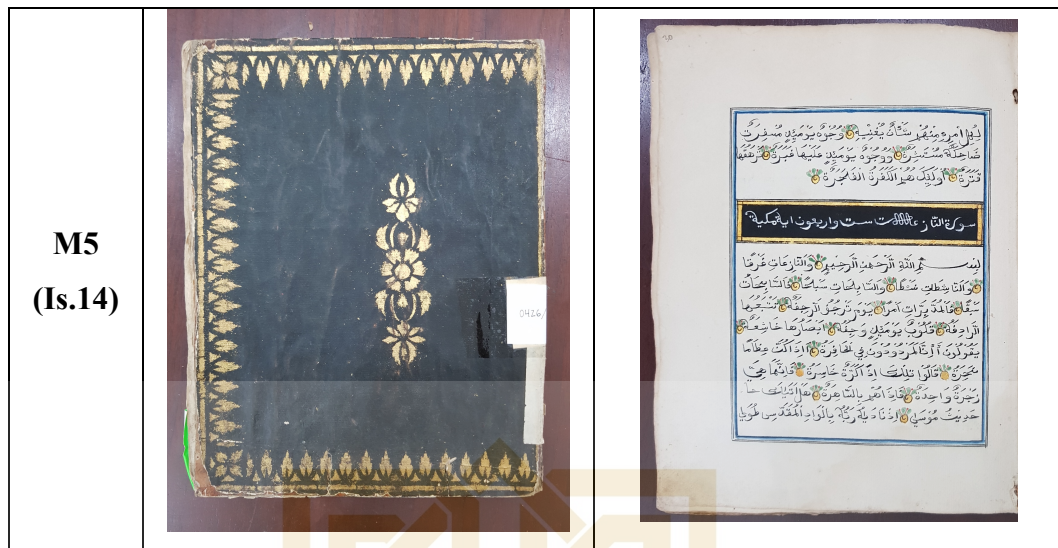 M5
(Is.14)
0426/
لكل امرء منهم شأن يغنيه وجوه يومئذ مسفرة
ضاحكة مستبشرة ووجوه يومئذ عليها غبرة ترهقها
قترة أولئك هم الكفرة الفاجرة
سورة النازعات ست واربعون اية مكية
بسم الله الرحمن الرحيم والنازعات غرقا
والناشطات نشطا والسابحات سبحا فالسابقات
سبقا فالمدبرات امرا يوم ترجف الراجفة تتبعها
الرادفة قلوب يومئذ واجفة ابصارها خاشعة
يقولون أئنا لمردودون في الحافرة أاذا كنا عظاما
نخرة قالوا تلك اذا كرة خاسرة فانما هي
زجرة واحدة فاذا هم بالساهرة هل اتيك
حديث موسى اذ ناديه ربه بالواد المقدس طوى